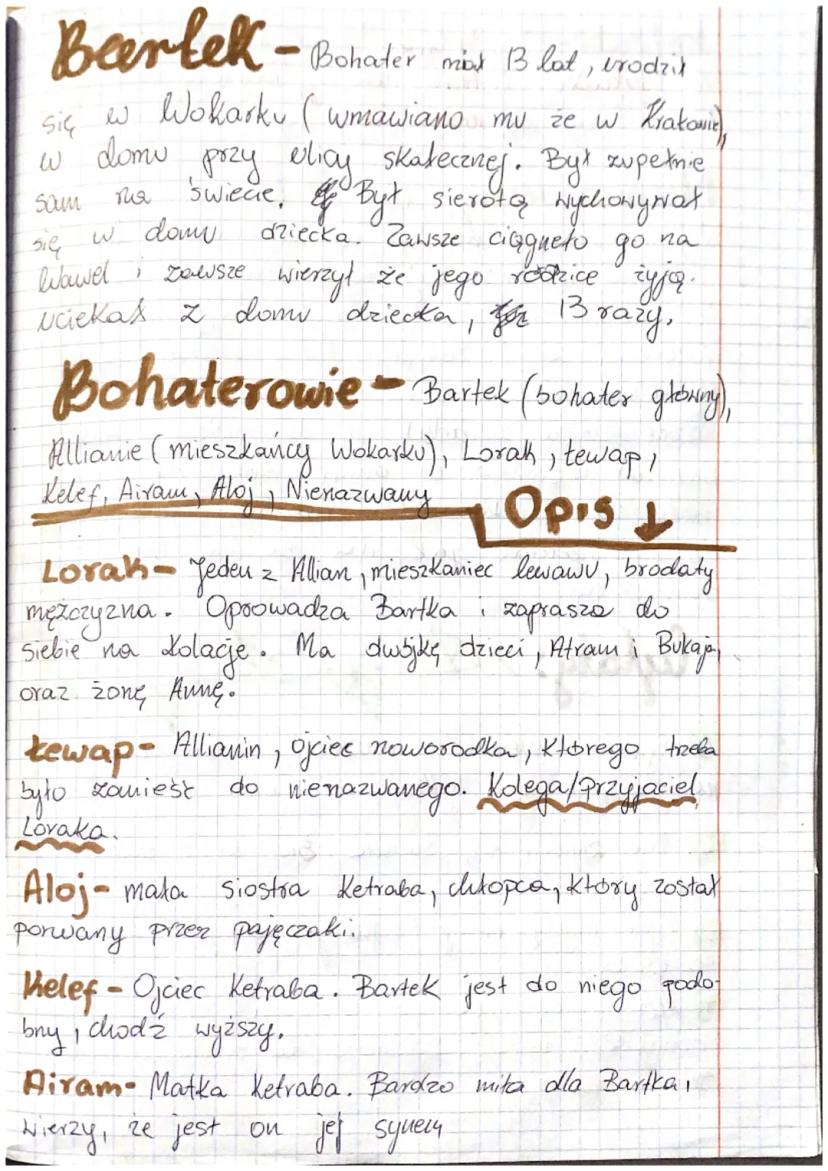 Bartek - Bohater miał 13 lat, urodził
się w Wokarku (wmawiano mu że w Krakowie),
w domu przy ulicy skałecznej. Był zupełnie
sam na świecie. Był sierotą wychowywał
się w domu dziecka. Zawsze ciągnęło go na
Wawel i zawsze wierzył że jego rodzice żyją.
uciekał z domu dziecka, 13 razy.
Bohaterowie - Bartek (bohater główny),
Allianie (mieszkańcy Wokarku), Lorak, Łewap,
Kelef, Airam, Aloj, Nienazwany
Opis ↓
Lorak - Jeden z Allian, mieszkaniec lewawu, brodaty
mężczyzna. Oprowadza Bartka i zaprasza do
siebie na kolację. Ma dwójkę dzieci, Atram i Bukaja,
oraz żonę Annę.
Łewap - Allianin, ojciec noworodka, którego trzeba
było zanieść do nienazwanego. Kolega/Przyjaciel
Loraka.
Aloj - mała siostra Ketraba, chłopca, który został
porwany przez pajęczaki.
Kelef - Ojciec Ketraba. Bartek jest do niego podo-
bny, chodź wyższy.
Airam - Matka Ketraba. Bardzo miła dla Bartka,
wierzy, że jest on jej synem